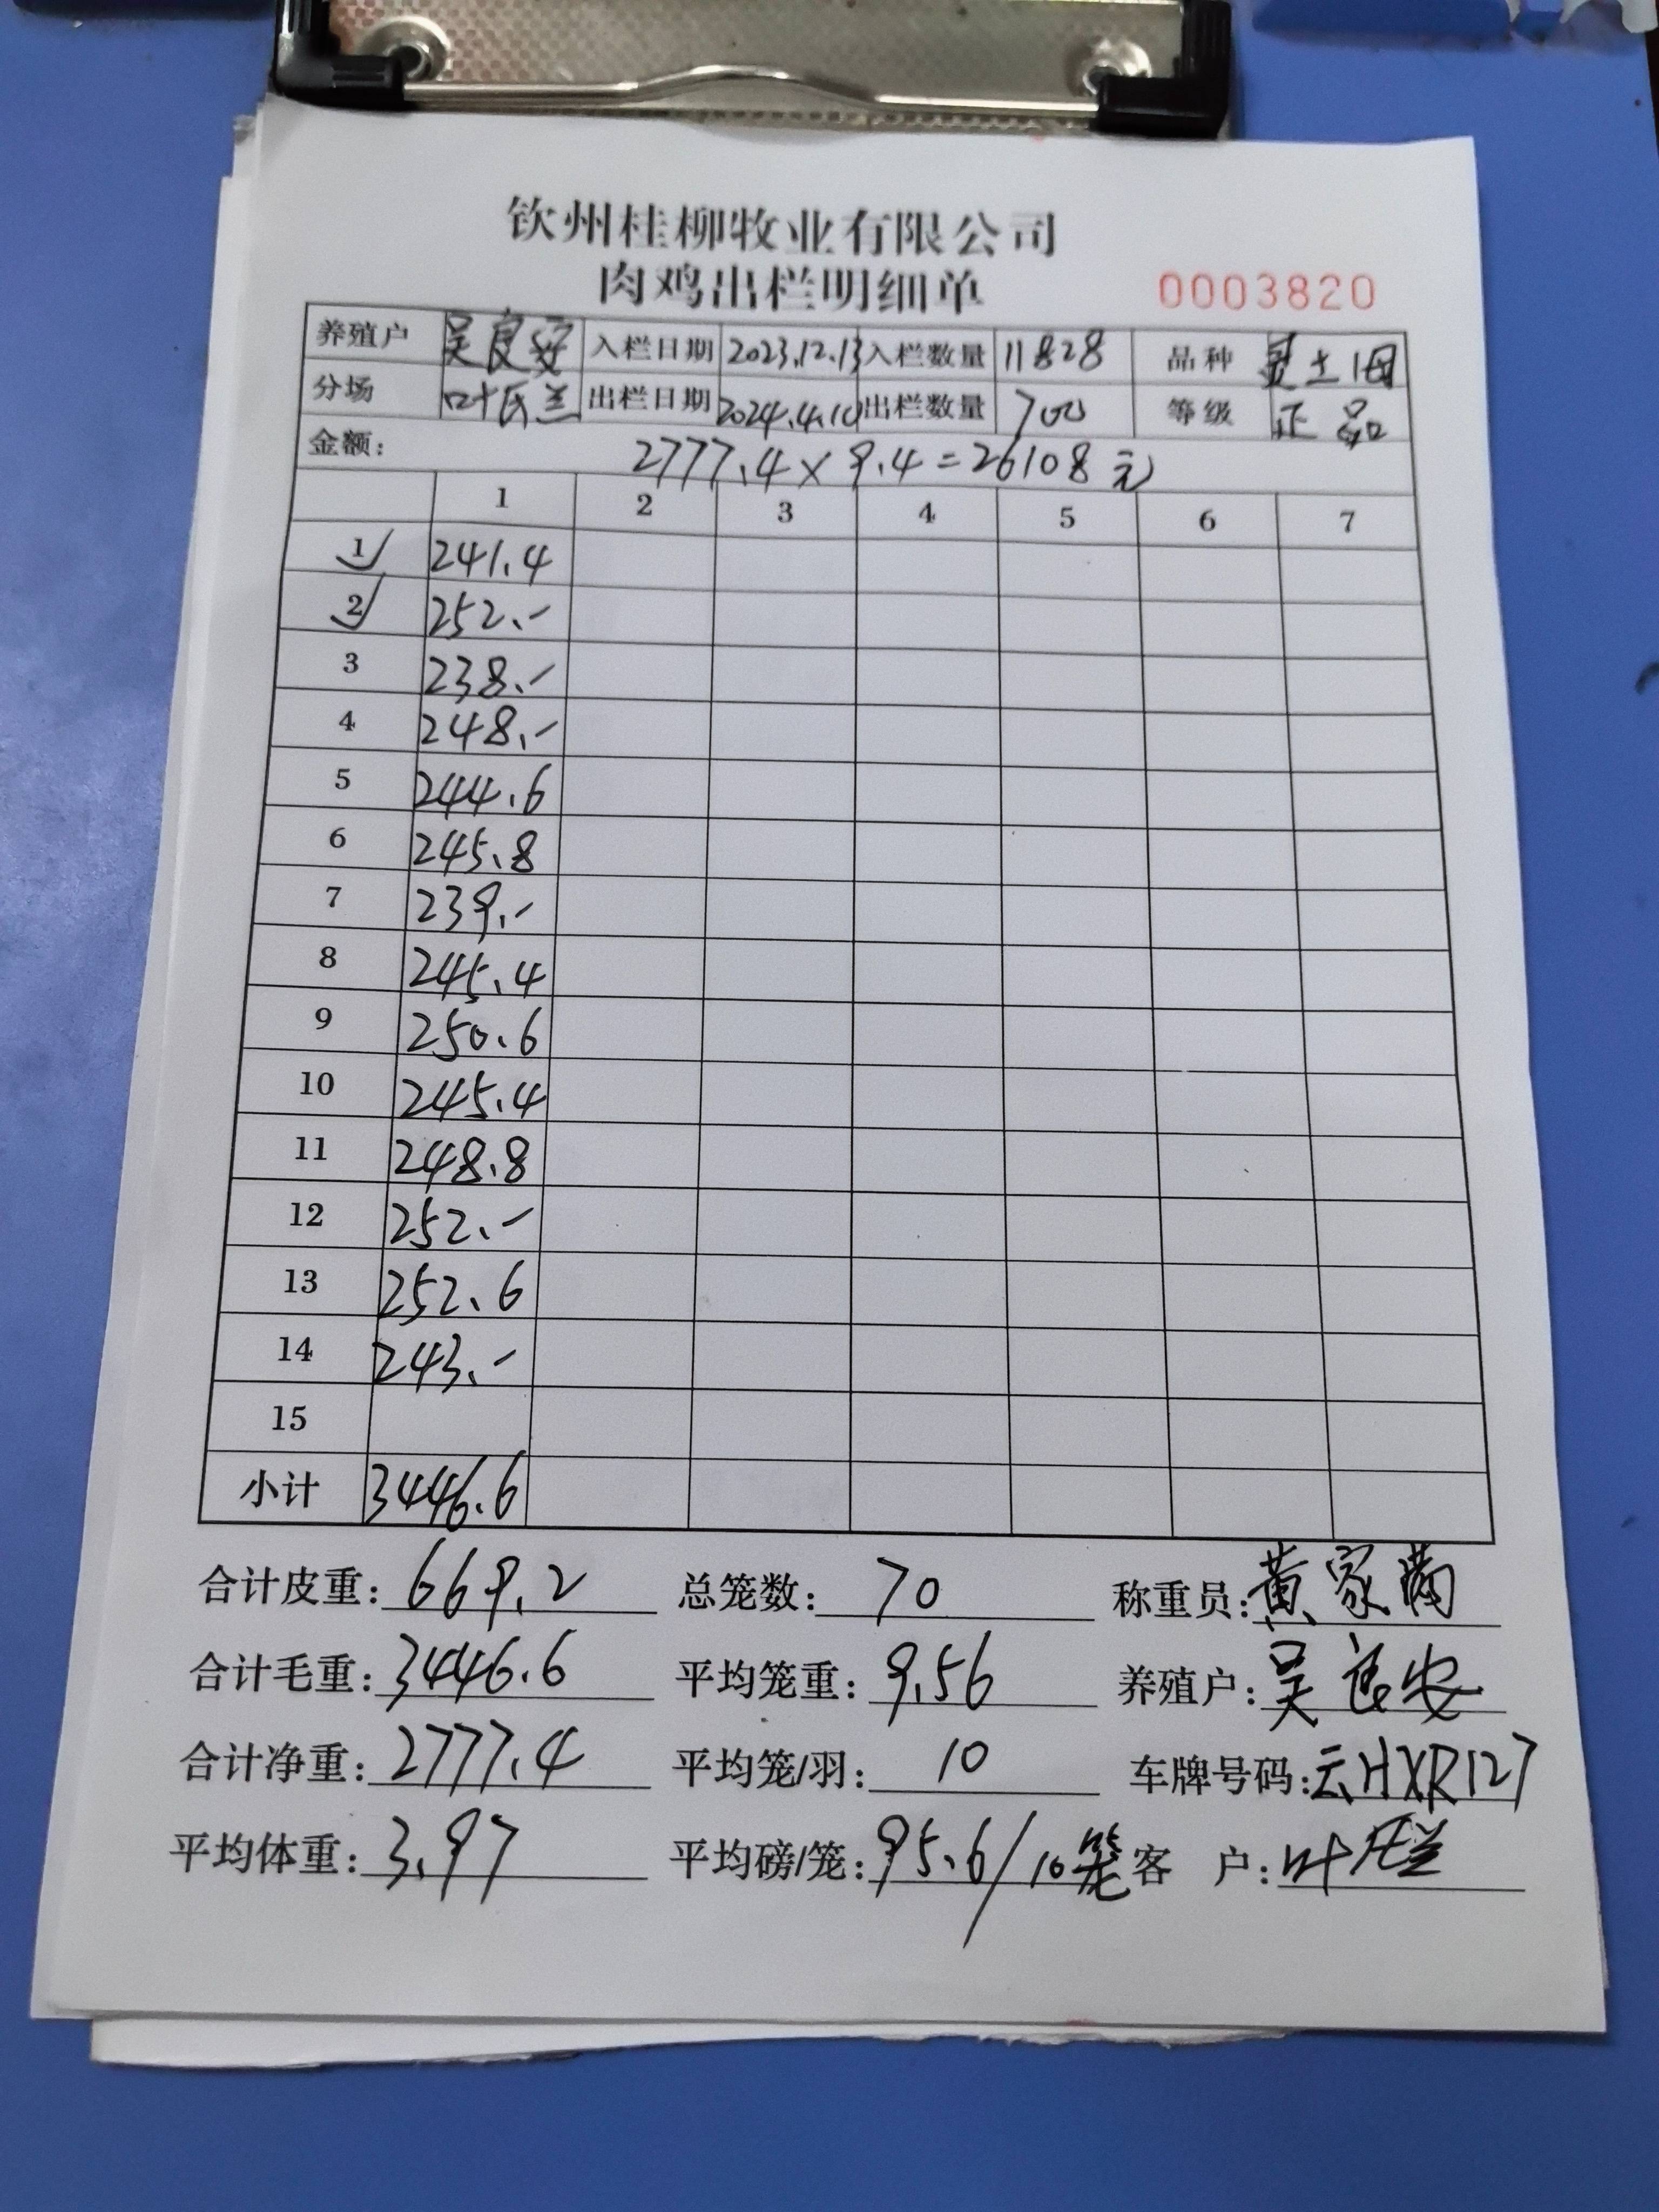 钦州桂柳牧业有限公司
肉鸡出栏明细单 0003820
养殖户 吴良安 入栏日期 2023.12.13 入栏数量 11828 品种 土1母
分场 叶氏兰 出栏日期 2024.4.10 出栏数量 700 等级 正品
金额: 2777.4×9.4=26108元
1 2 3 4 5 6 7
1 241.4
2 252.-
3 238.-
4 248.-
5 244.6
6 245.8
7 239.-
8 245.4
9 250.6
10 245.4
11 248.8
12 252.-
13 252.6
14 243.-
15
小计 3446.6
合计皮重: 669.2 总笼数: 70 称重员: 黄家
合计毛重: 3446.6 平均笼重: 9.56 养殖户: 吴良安
合计净重: 2777.4 平均笼/羽: 10 车牌号码: 云HXR127
平均体重: 3.97 平均磅/笼: 95.6/10笼 客 户: 叶氏兰